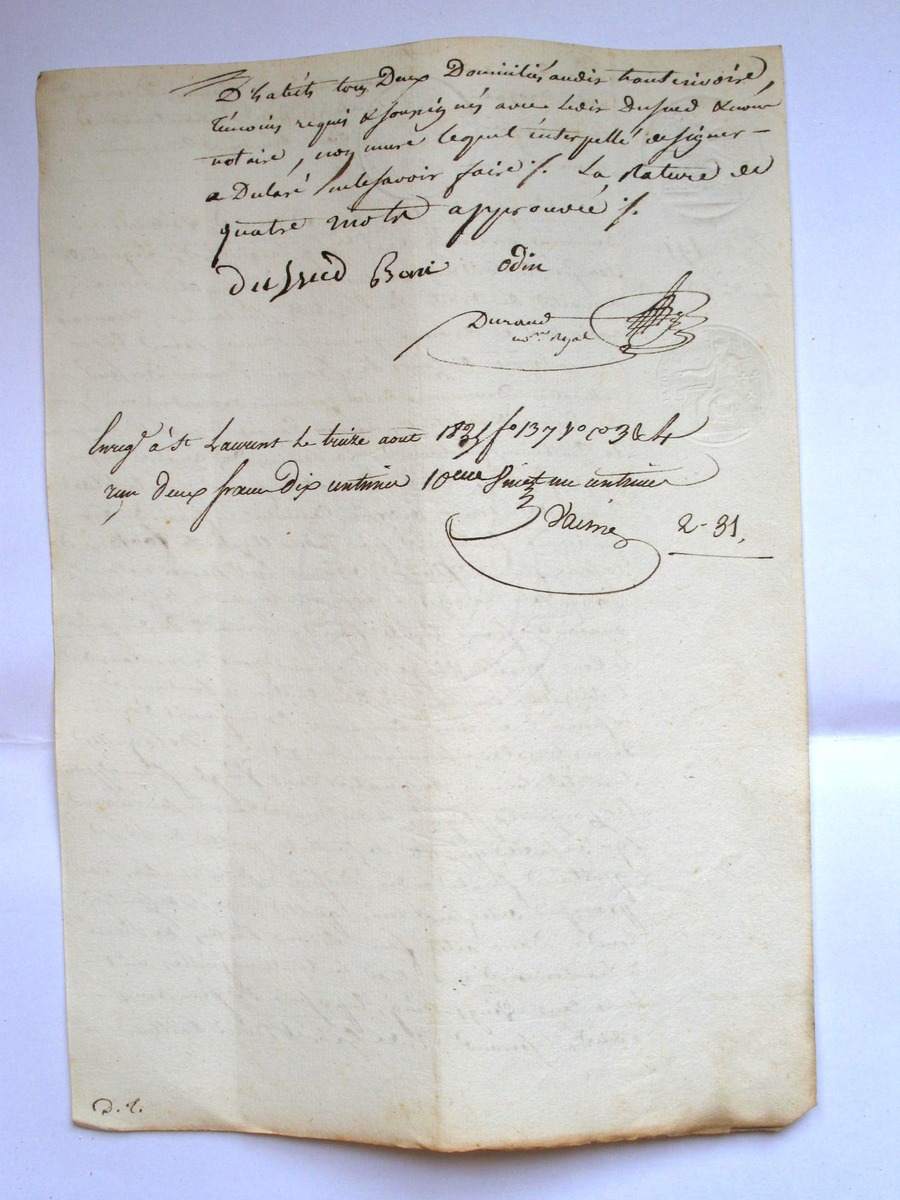 D'habits tous Deux Domiciliés audit hauterivoire,
témoins requis & soussignés avec ledit Dussud & nous
notaire, non mure lequel interpellé de signer
a Déclaré ne le savoir faire ./. La rature de
quatre mots approuvée ./.
dussud Bori odin
Durand
no.re Royal
Enreg.é à St Laurent le treize aout 1821 f.o 137 v.o c.es 3 & 4
reçu deux francs dix centimes 10eme vingt un centimes
2-31,
D. L.